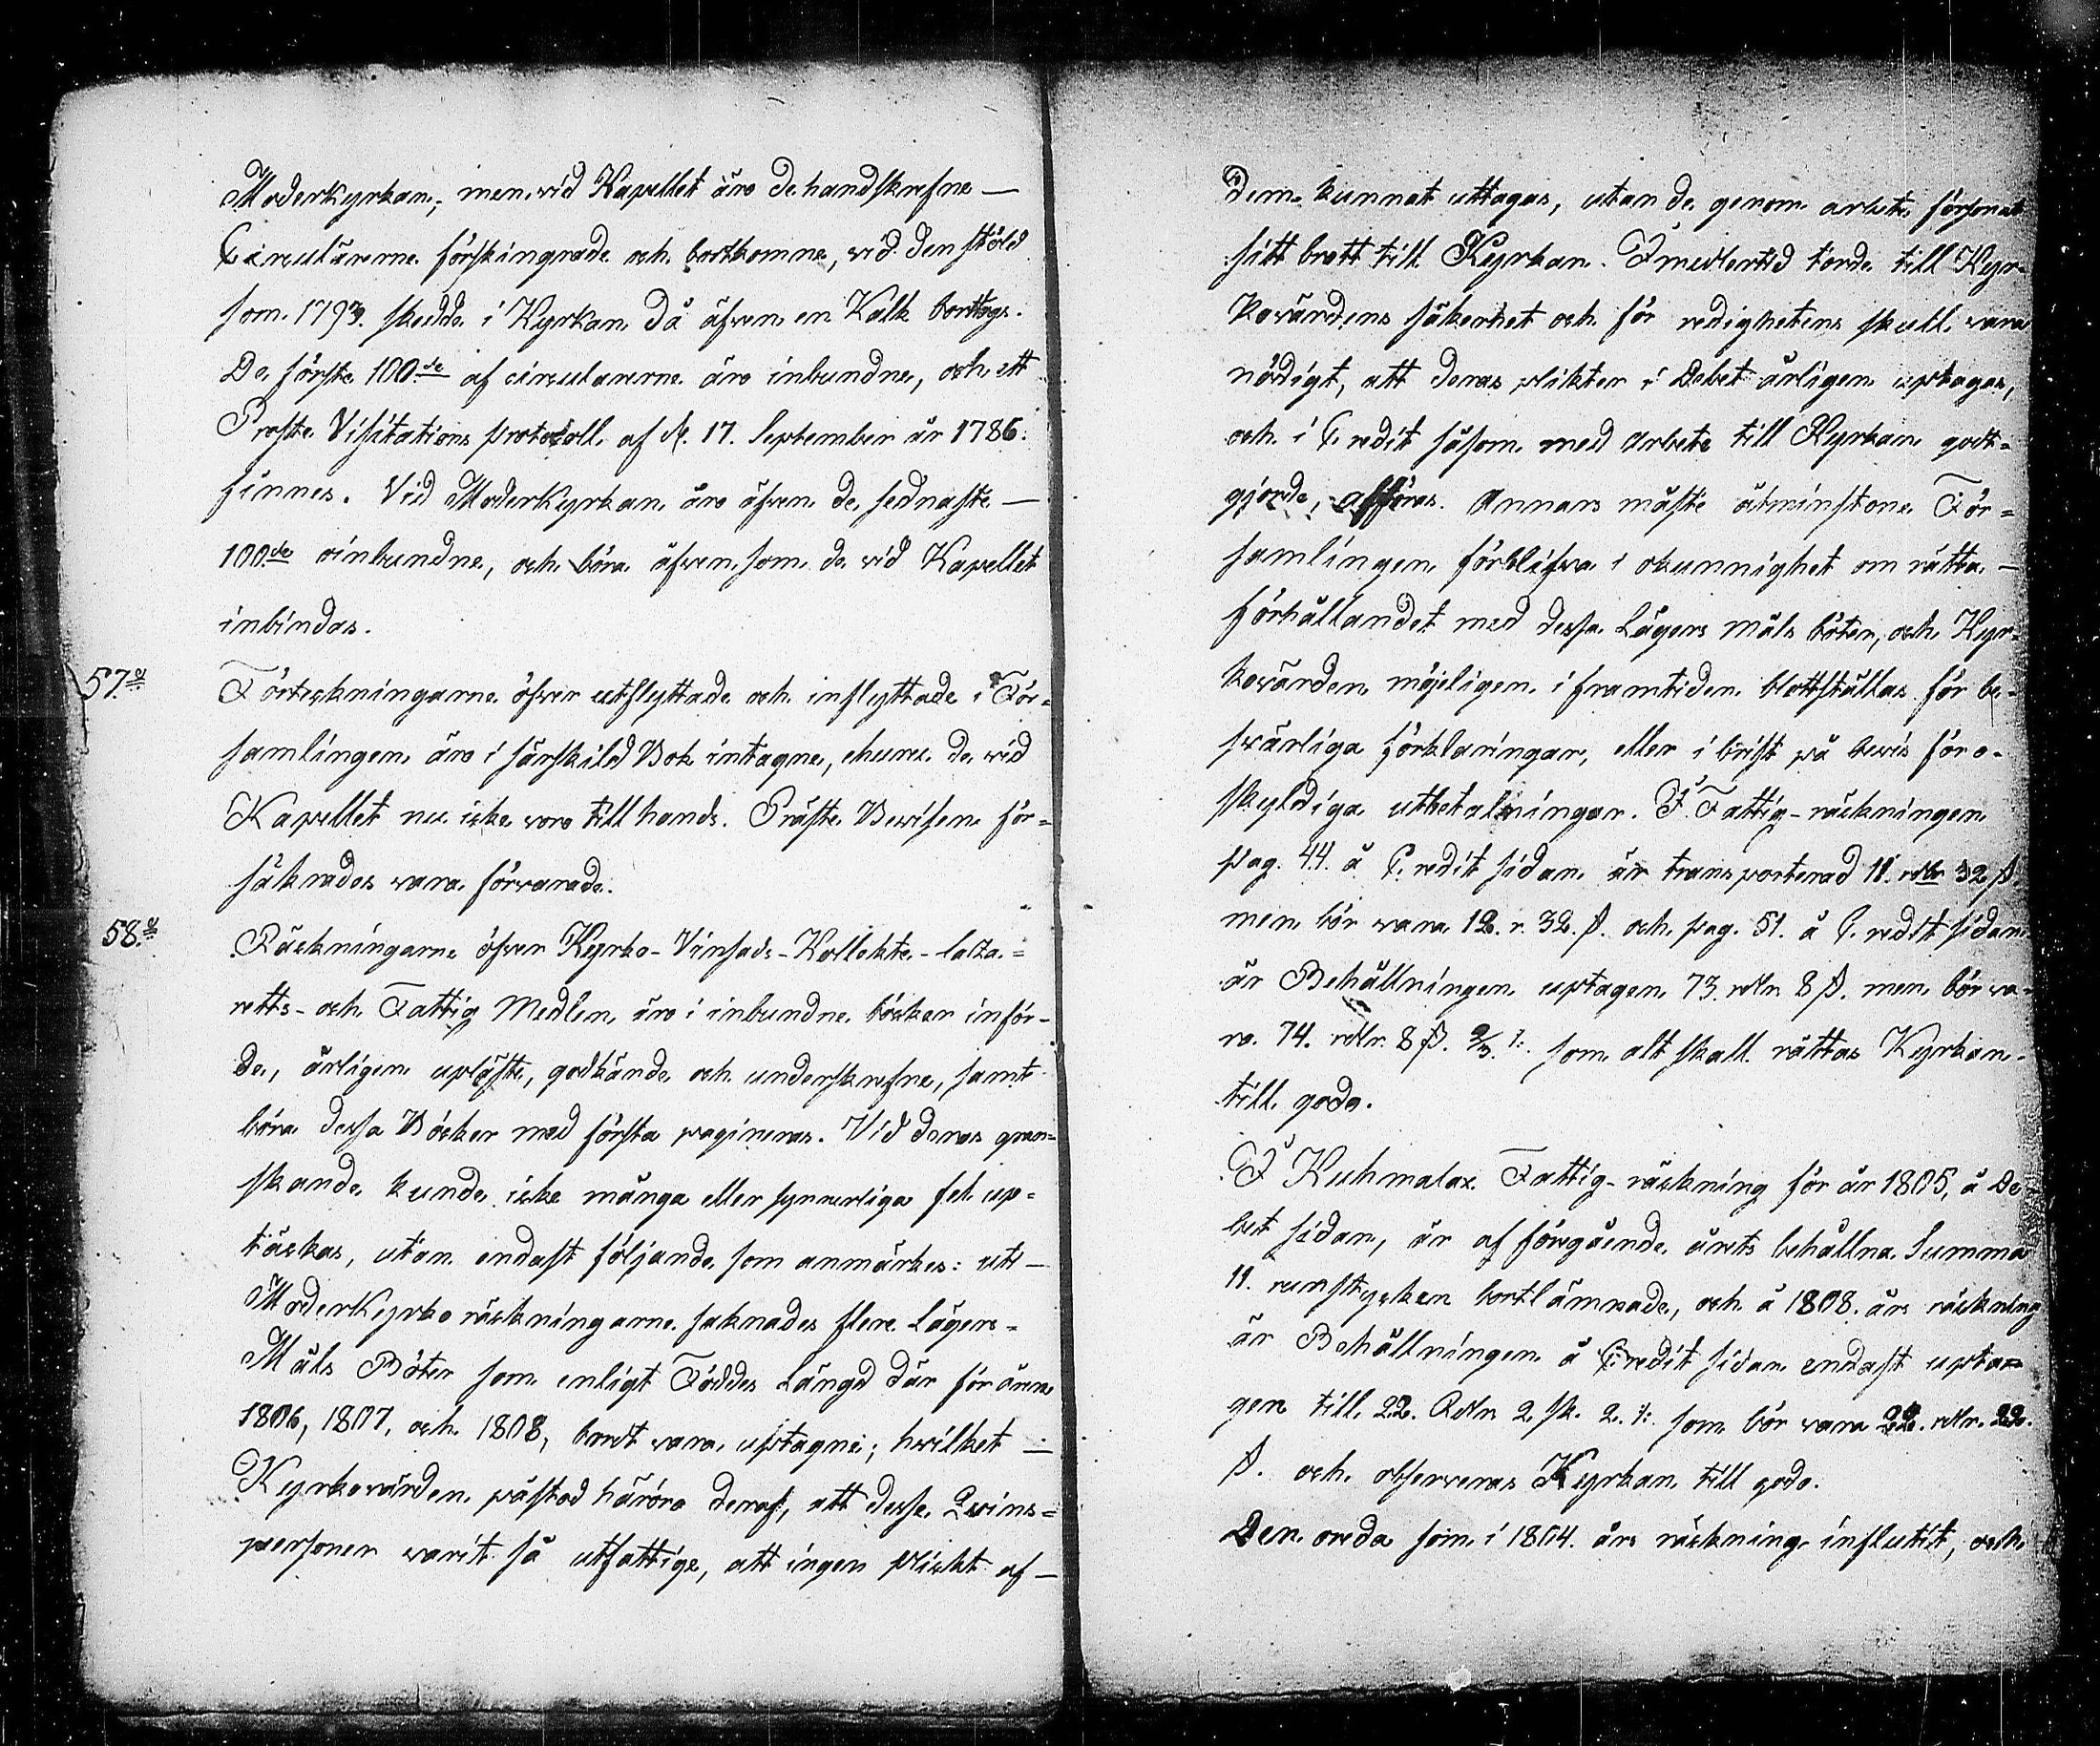 Moderkyrkan; men vid Kapellet äro de handskrefne —
Circulärerne förskingrade och bortkomne, vid den stöld
som 1793. skedde i Kyrkan då äfven en Kalk borttogs.
De förste 100.de af circulärerne äro inbundne, och ett
Proste Visitations protocoll af d. 17. September år 1786.
finnes. Vid Moderkyrkan äro äfven de sednaste —
100de oinbundne, och böra äfven som de vid Kapellet
inbindas.
57.o Förteckningarne öfver utflyttade och inflyttade i För=
samlingen äro i särskild Bok intagne, ehuru de vid
Kapellet nu icke voro till hands. Präste Bevisen för=
säkrades vara förvarade.
58.o Räckningarne öfver Kyrko- Vinsads- Kollekte- laza=
retts- och Fattig Medlen, äro i inbundne böcker inför-
de, årligen upläste, godkände och underskrefne, samt
böra dessa Böcker med första pagineras. Vid deras gran=
skande kunde icke många eller synnerliga fel up=
täckas, utan endast följande som anmärkes: uti —
Moderkyrko räckningarne saknades flere Lägers=
Måls Böter som enligt Föddes Längd där för åren
1806, 1807, och 1808, bordt vara uptagne; hvilket —
Kyrkovärden påstod häröra deraf, att desse Qvins=
personer varit så utfattige, att ingen plickt af —
dem kunnat uttagas, utan de genom arbete försonat
sitt brott till Kyrkan. Imedlertid torde till Kyr-
kovärdens säkerhet och för redighetens skull vara
nödigt, att deras plikter i Debet årligen uptagas,
och i Credit såsom med arbete till Kyrkan godt=
gjorde, afföras. Annars måste åtminstone För=
samlingen förblifva i okunnighet om rätta —
förhållandet med dessa Lägers måls böter, och Kyr-
kovärden möjeligen i framtiden blottställas för be-
svärliga förklaringar, eller i brist på bevis för o-
skyldiga utbetalningar. I Fattig-räckningen
pag. 44. å Credit sidan är transporterad 11. rdlr 32 ß.
men bör vara 12. r. 32. ß. och pag. 51. å Credit sidan
är Behållningen uptagen 73. rdlr 8 ß. men bör va-
ra 74. rdlr. 8 ß. 2/3. som alt skall rättas Kyrkan
till godo.
I Kuhmalax Fattig-räckning för år 1805, å De
bet sidan, är af föregående årets behållna Summa
11. runstycken bortlämnade, och å 1808. års räckning
är Behållningen å Credit sidan endast upta=
gen till 22. Rdlr 2 sk. 2. som bör vara 22. rdlr. 22.
ß. och observeras Kyrkan till godo.
Den oreda som i 1804. års räckning influtit, och